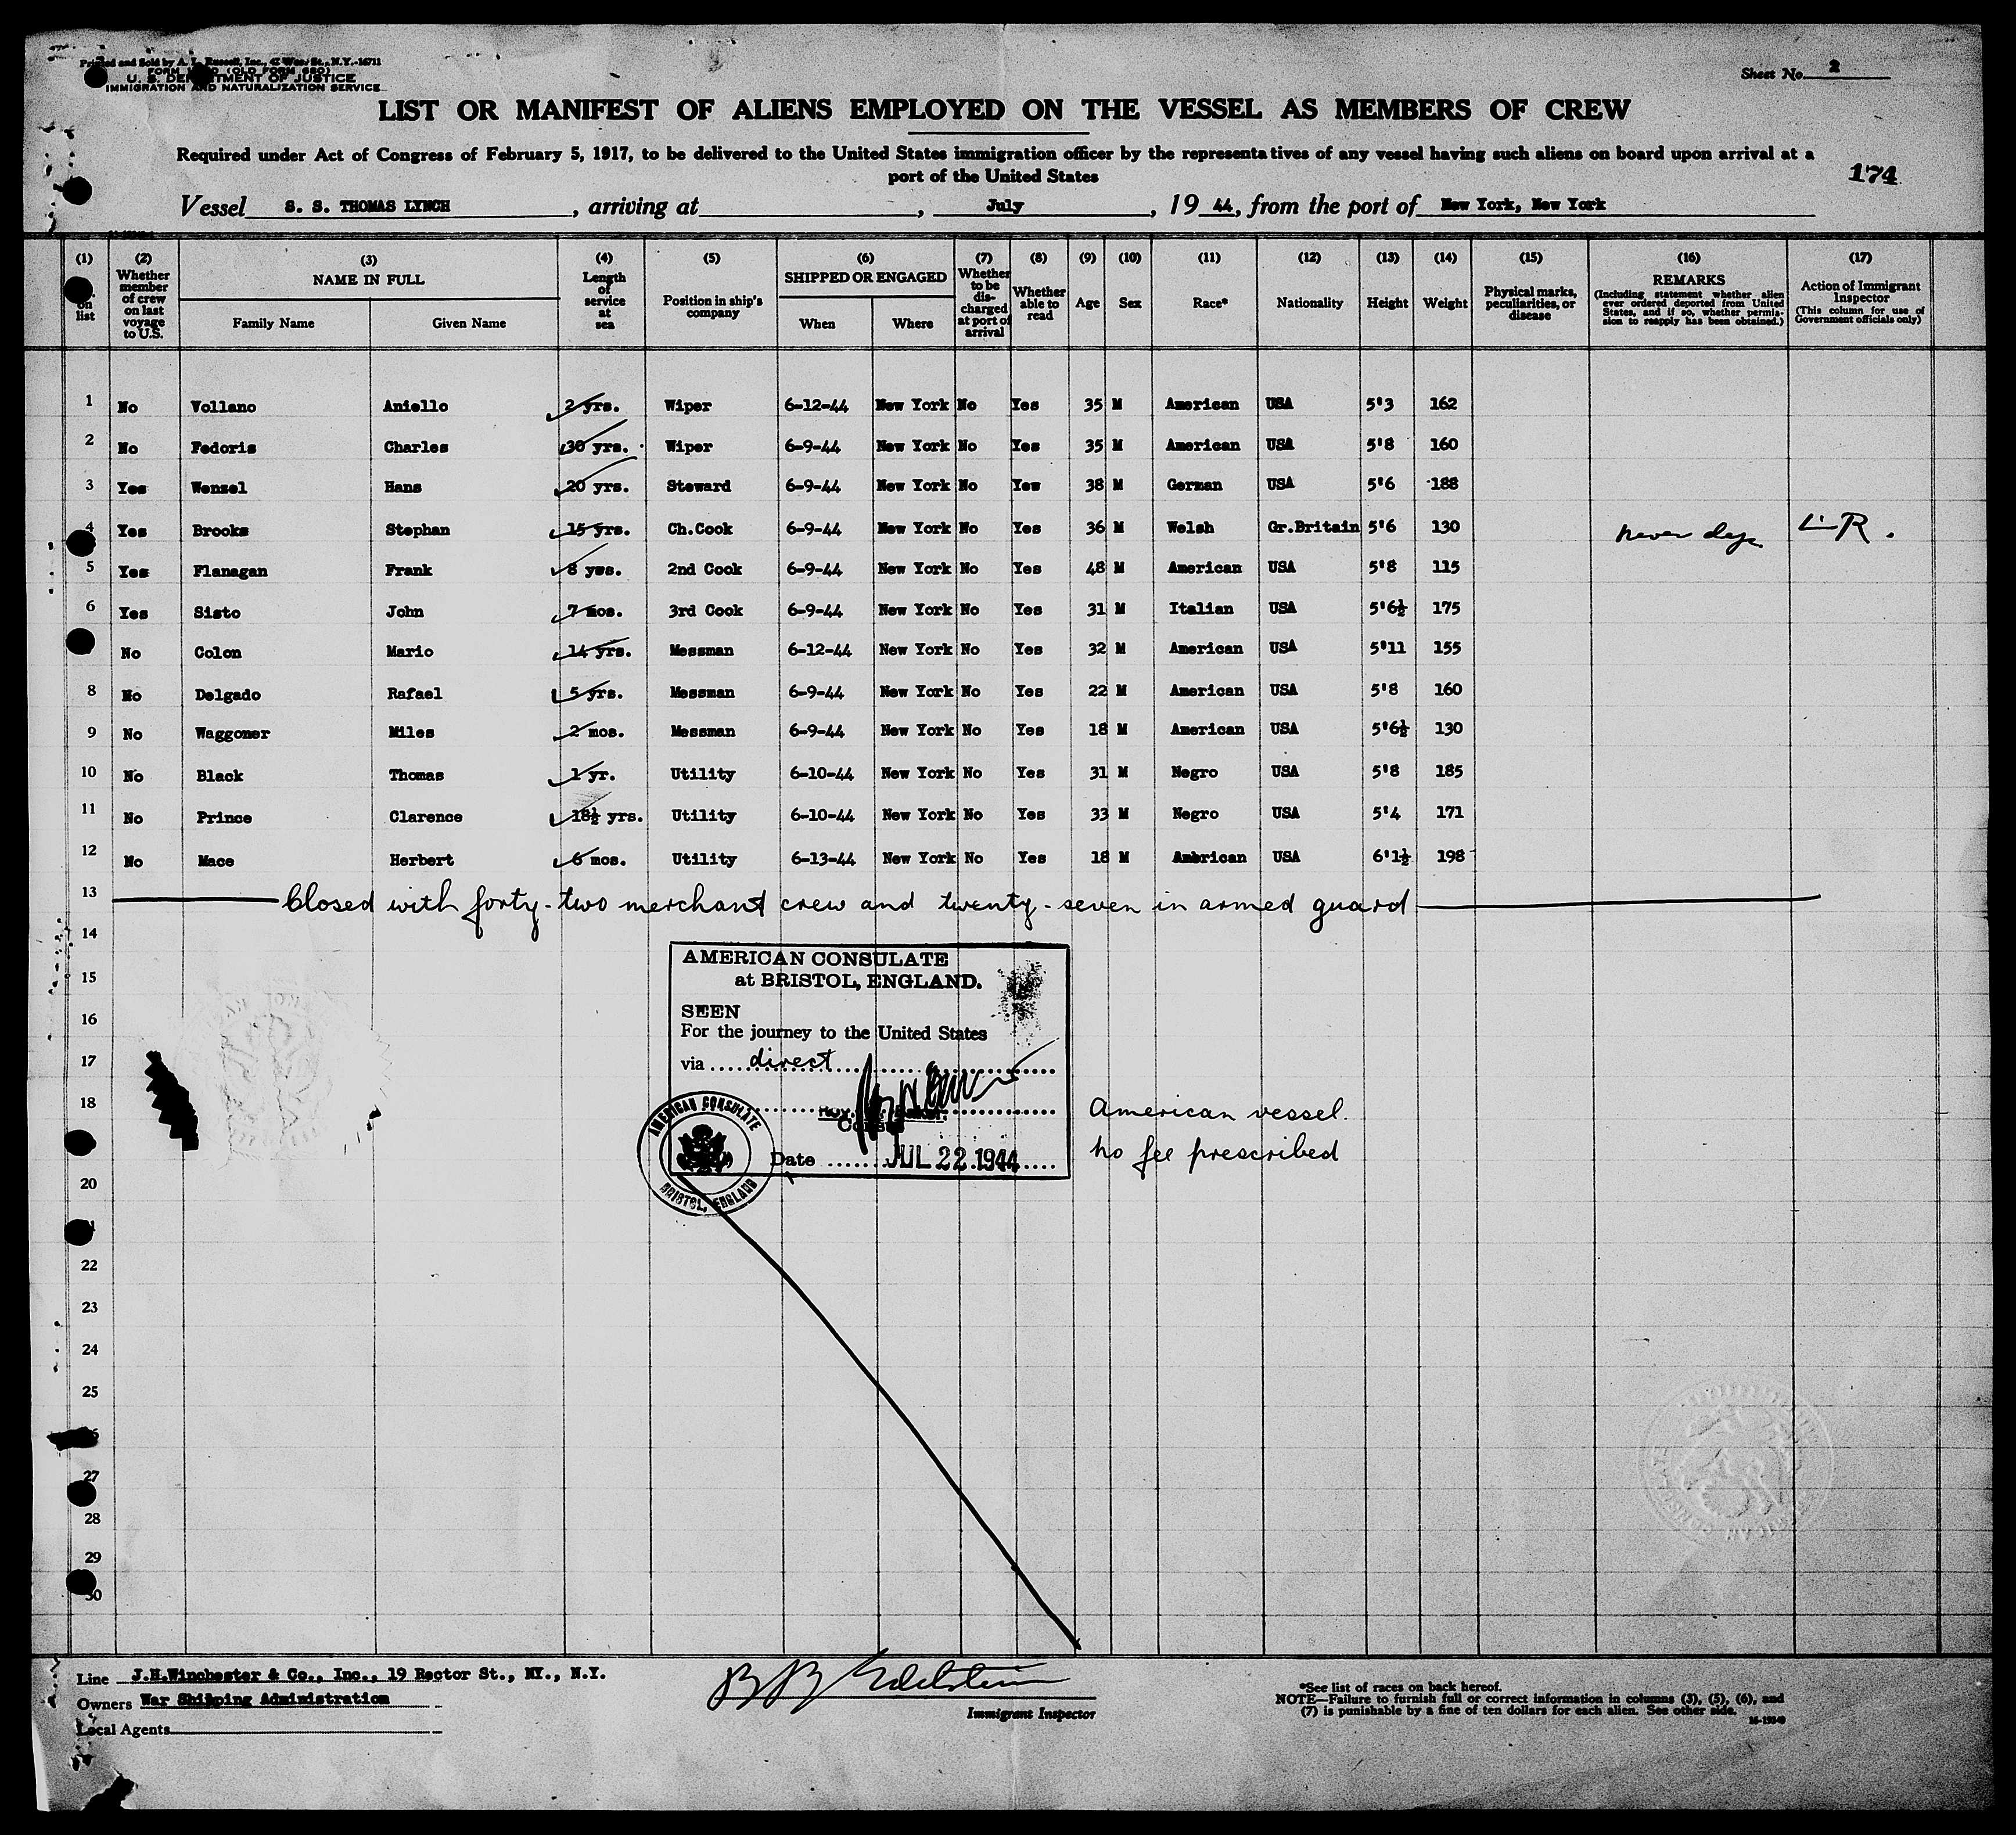 Printed and Sold by A. L. Russell, Inc., Wee. St., N.Y.-16711
U. S. DEPARTMENT OF JUSTICE
IMMIGRATION AND NATURALIZATION SERVICE
Sheet No. 2
LIST OR MANIFEST OF ALIENS EMPLOYED ON THE VESSEL AS MEMBERS OF CREW
Required under Act of Congress of February 5, 1917, to be delivered to the United States immigration officer by the representatives of any vessel having such aliens on board upon arrival at a
port of the United States
174
Vessel S. S. THOMAS LYNCH, arriving at , July, 19 44, from the port of New York, New York
(1) on list (2) Whether member of crew on last voyage to U.S. (3) NAME IN FULL Family Name Given Name (4) Length of service at sea (5) Position in ship's company (6) SHIPPED OR ENGAGED When Where (7) Whether to be discharged at port of arrival (8) Whether able to read (9) Age (10) Sex (11) Race* (12) Nationality (13) Height (14) Weight (15) Physical marks, peculiarities, or disease (16) REMARKS (Including statement whether alien ever ordered deported from United States, and if so, whether permission to reapply has been obtained.) (17) Action of Immigrant Inspector (This column for use of Government officials only)
1 No Vollano Aniello 2 yrs. Wiper 6-12-44 New York No Yes 35 M American USA 5'3 162
2 No Fedoris Charles 30 yrs. Wiper 6-9-44 New York No Yes 35 M American USA 5'8 160
3 Yes Wenzel Hans 20 yrs. Steward 6-9-44 New York No Yes 38 M German USA 5'6 188
4 Yes Brooks Stephan 15 yrs. Ch.Cook 6-9-44 New York No Yes 36 M Welsh Gr.Britain 5'6 130 never dep
5 Yes Flanagan Frank 8 yws. 2nd Cook 6-9-44 New York No Yes 48 M American USA 5'8 115
6 Yes Sisto John 7 mos. 3rd Cook 6-9-44 New York No Yes 31 M Italian USA 5'6½ 175
No Colon Mario 14 yrs. Messman 6-12-44 New York No Yes 32 M American USA 5'11 155
8 No Delgado Rafael 5 yrs. Messman 6-9-44 New York No Yes 22 M American USA 5'8 160
9 No Waggoner Miles 2 mos. Messman 6-9-44 New York No Yes 18 M American USA 5'6½ 130
10 No Black Thomas 1 yr. Utility 6-10-44 New York No Yes 31 M Negro USA 5'8 185
11 No Prince Clarence 18½ yrs. Utility 6-10-44 New York No Yes 33 M Negro USA 5'4 171
12 No Mace Herbert 6 mos. Utility 6-13-44 New York No Yes 18 M American USA 6'1½ 198
13 Closed with forty-two merchant crew and twenty-seven in armed guard
14
AMERICAN CONSULATE
15 at BRISTOL, ENGLAND.
SEEN
16 For the journey to the United States
17 via direct
18 American vessel.
Consul
no fee prescribed
Date JUL 22 1944
AMERICAN CONSULATE BRISTOL, ENGLAND
20
22
23
24
25
27
28
29
30
Line J.H.Winchester & Co., Inc., 19 Rector St., NY., N.Y.
Owners War Shipping Administration
Local Agents
B B Edelstein
Immigrant Inspector
*See list of races on back hereof.
NOTE—Failure to furnish full or correct information in columns (3), (5), (6), and
(7) is punishable by a fine of ten dollars for each alien. See other side.